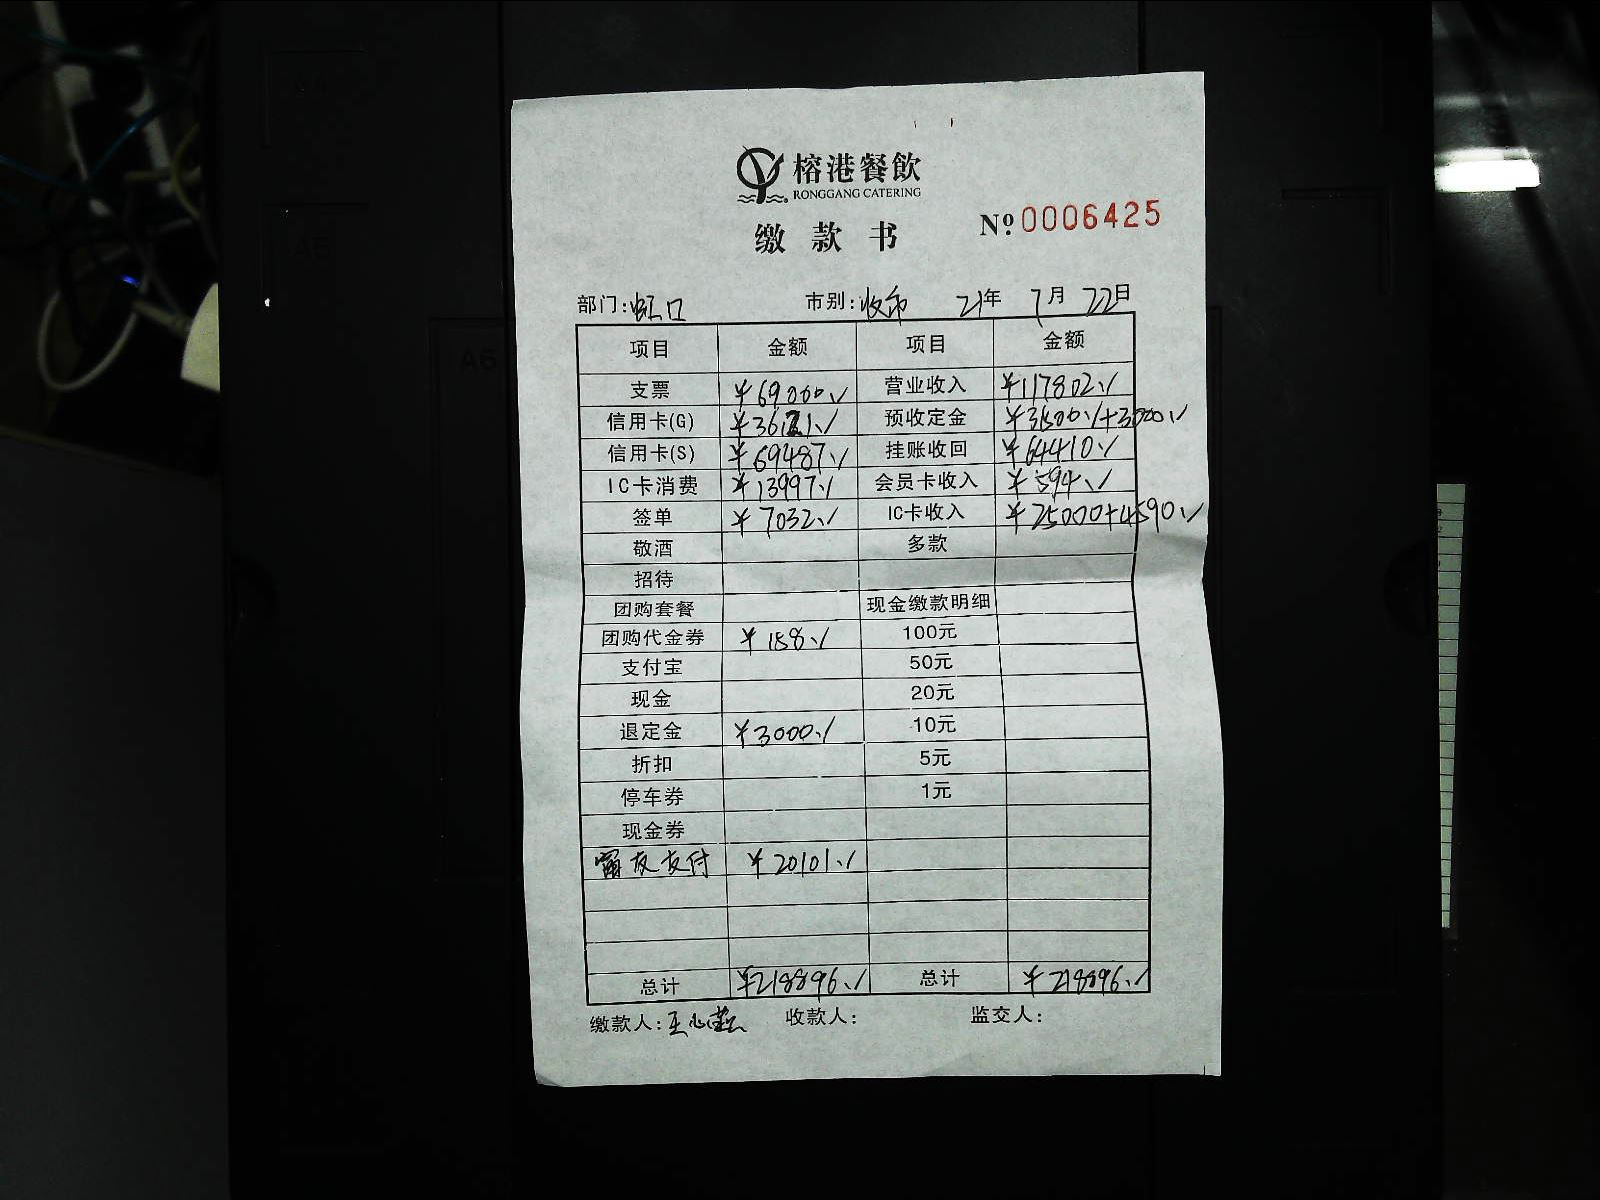 榕港餐飲
RONGGANG CATERING
缴款书
№ 0006425
部门: 虹口 市别: 收市 21年 7月 22日
项目 金额 项目 金额
支票 ¥69000 营业收入 ¥117802
信用卡(G) ¥36121 预收定金 ¥3500+3000
信用卡(S) ¥69487 挂账收回 ¥64410
IC卡消费 ¥13997 会员卡收入 ¥594
签单 ¥7032 IC卡收入 ¥25000+4590
敬酒 多款
招待
团购套餐 现金缴款明细
团购代金券 ¥158 100元
支付宝 50元
现金 20元
退定金 ¥3000 10元
折扣 5元
停车券 1元
现金券
富友支付 ¥20101
总计 ¥218896 总计 ¥218896
缴款人: 收款人: 监交人:
A6